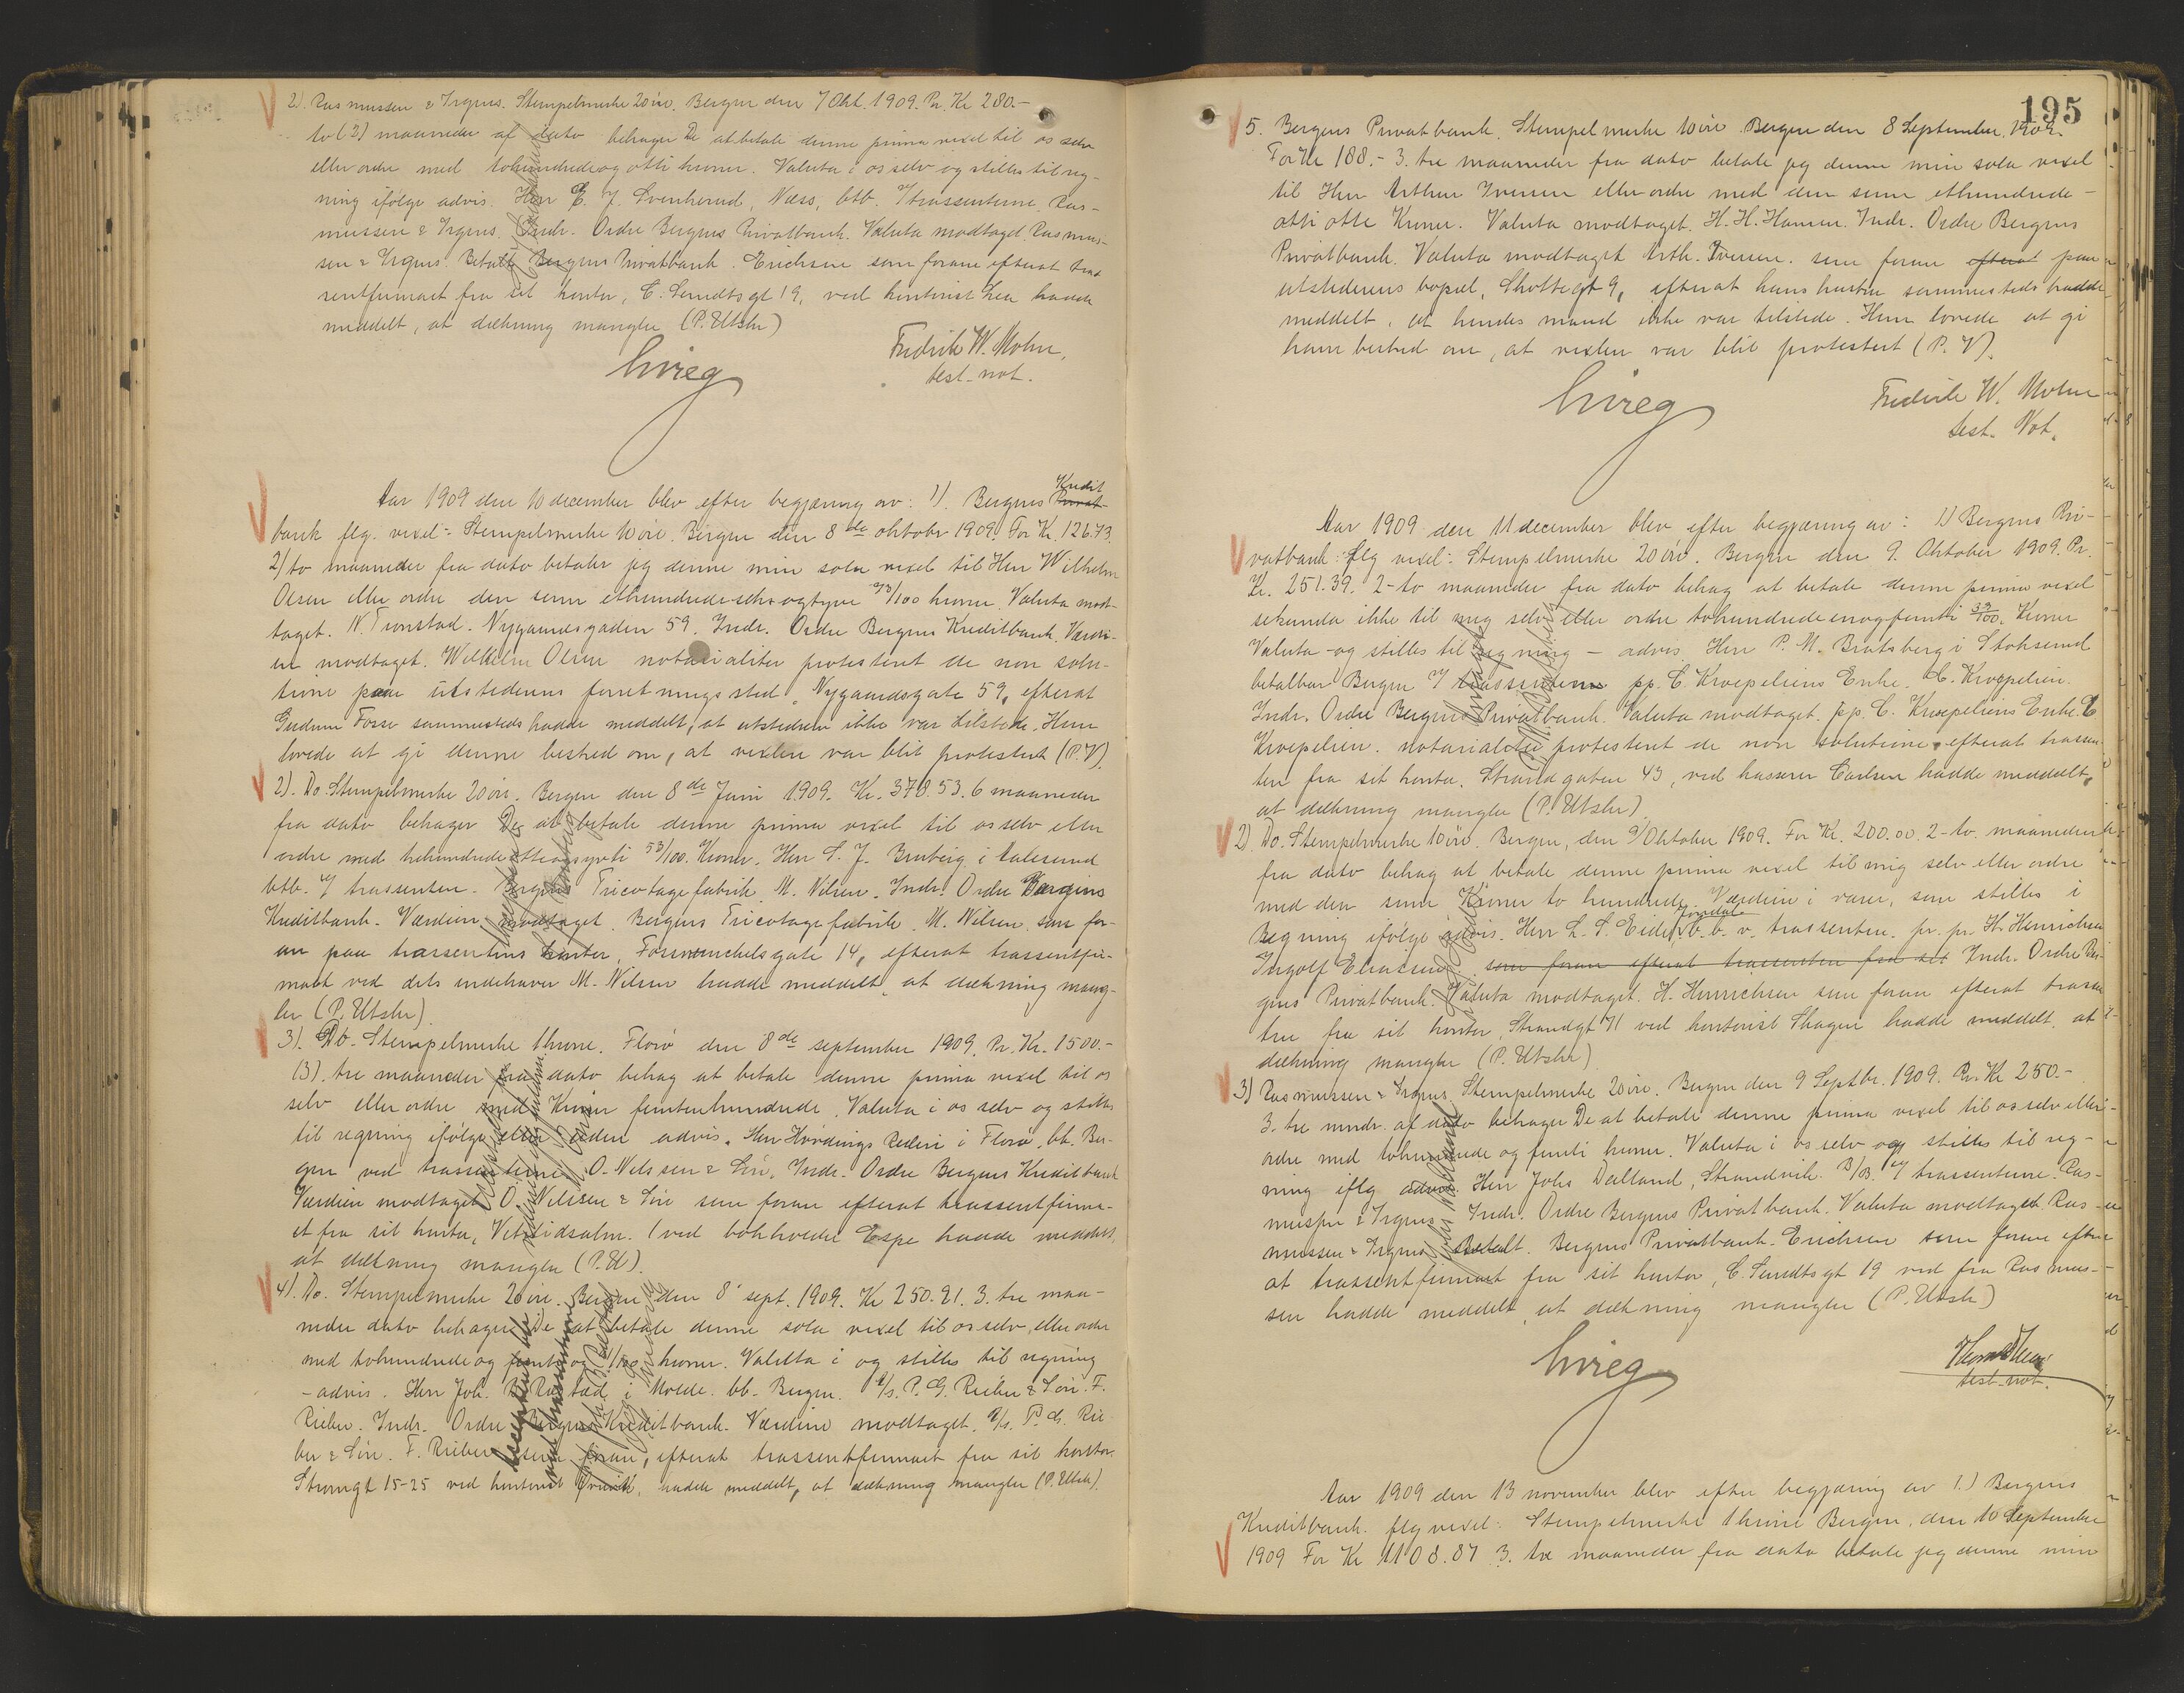 2). Rasmussen & Irgens. Stempelmerke 20 øre. Bergen den 7 Okt. 1909. Pr. Kr 280.-
to (2) maaneder af dato behager De at betale denne prima vexel til os selv
eller ordre med tohundredeogotti kroner. Valuta i os selv og stilles til reg-
ning ifølge advis. Herr E. J. Svenkerud, Næss, btb. trassenterne. Ras-
mussen & Irgens. Indr. Ordre Bergens Privatbank. Valuta modtaget. Rasmus-
sen & Irgens. Betalt Bergens Privatbank. Erichsen som foran efterat tras
sentfirmaet fra sit kontor, C. Sundtsgt 19, ved kontorist hadde
meddelt, at dækning mangler (P. Utstr)
Fredrik W. Mohn,
test. not.
Aar 1909 den 10 december blev efter begjæring av: 1). Bergens Kredit Privat
bank flg. vexel:- Stempelmerke 10 øre. Bergen den 8de oktober 1909. For Kr. 126.73.
2) to maaneder fra dato betaler jeg denne min sola vexel til Herr Wilhelm
Olsen eller ordre den sum ethundredeseksogtyve 73/100 kroner. Valuta mod-
taget. N. Tronstad. Nygaardsgaden 59. Indr. Ordre Bergens Kreditbank. Værdi-
en modtaget. Wilhelm Olsen notarialiter protesteret de non solu-
tione paa utstederens forretningssted, Nygaardsgate 59, efterat
Gudrun Fosse sammesteds hadde meddelt, at utstederen ikke var tilstede. Hun
lovede at gi denne besked om, at vexlen var blit protestert (P. V).
2). Do. Stempelmerke 20 øre. Bergen den 8de Juni 1909. Kr. 378.53. 6 maaneder
fra dato behager De at betale denne prima vexel til os selv eller
ordre med trehundredeotteogsyvti 53/100. Kroner. Herr S. J. Bruberg i Aalesund
btb. trassenten. Bergens Tricotagefabrik. M. Nilsen. Indr. Ordre Bergens
Kreditbank. Værdien modtaget. Bergens Tricotagefabrik. M. Nilsen. som for-
an paa trassentens kontor, Forswenchelsgate 14, efterat trassentfir-
maet ved dets indehaver M. Nilsen hadde meddelt, at dækning mang-
ler (P. Utstr)
3). Do. Stempelmerke 1 krone. Florø den 8de september 1909. Pr. Kr. 1500.-
(3). tre maaneder fra dato behag at betale denne prima vexel til os
selv eller ordre med Kroner femtenhundrede. Valuta i os selv og stilles
til regning ifølge eller uden advis. Herr Høvdings Rederi i Florø, bt. Ber-
gen ved trassenterne O. Nilssen & Søn. Indr. Ordre Bergens Kreditbank
Værdien modtaget O. Nilssen & Søn som foran efterat trassentfirma-
et fra sit kontor, Vetrlidsalm. 1 ved bokholder Espe hadde meddelt,
at dækning mangler (P. U).
4). Do. Stempelmerke 20 øre. Bergen den 8' sept. 1909. Kr 250.91. 3. tre maa-
neder dato behager De at betale denne sola vexel til os selv, eller ordre
med tohundrede og femti og 91/100 kroner. Valuta i og stilles til regning
-advis. Herr Joh. R. Røstad i Molde. bb. Bergen. A/s. P. G. Rieber & Søn. F.
Rieber. Indr. Ordre Bergens Kreditbank. Værdien modtaget. A/s. P. G. Rie
ber & Søn. F. Rieber som foran, efterat trassentfirmaet fra sit kontor
Strangt 15-25 ved kontorist hadde meddelt, at dækning mangler (P. Utstr).
195
5. Bergens Privatbank. Stempelmerke 10 øre Bergen den 8 September, 1909.
For Kr 188.- 3. tre maaneder fra dato betale jeg denne min sola vexel
til Herr Arthur Iversen eller ordre med den sum ethundrede-
otti otte Kroner. Valuta modtaget. H. H. Hansen. Indr. Ordre Bergens
Privatbank. Valuta modtaget Arth. Iversen. som foran efterat paa
utstederens bopæl, Skottegt 9, efterat hans hustru sammesteds hadde
meddelt, at hendes mand ikke var tilstede. Hun lovede at gi
ham besked om, at vexlen var blit protestert (P. V).
Fredrik W. Mohn
test. Not.
Aar 1909 den 11 december blev efter begjæring av: 1) Bergens Pri-
vatbank: flg vexel: Stempelmerke 20 øre. Bergen den 9. Oktober 1909. Pr.
Kr. 251.39. 2-to maaneder fra dato behag at betale denne prima vexel
sekunda ikke til mig selv eller ordre tohundredeenogfemti 39/100. Kroner
Valuta - og stilles til regning - advis. Herr P. M. Bratsberg i Stoksund
betalbar Bergen trassenterne pp. C. Krøpeliens Enke. C. Krøpelien.
Indr. Ordre Bergens Privatbank. Valuta modtaget. pp. C. Krøpeliens Enke. C
Krøpelien. notarialiter protestert de non solutione, efterat trassen
ten fra sit kontor, Strandgaten 43, ved kasserer Carlsen hadde meddelt,
at dækning mangler (P. Utstr).
2). Do. Stempelmerke 10 øre. Bergen, den 9/Oktober 1909. For Kr. 200.00. 2-to. maaneder
fra dato behag at betale denne prima vexel til mig selv eller ordre
med den sum Kroner to hundrede. Værdien i varer, som stilles i
Regning ifølge advis. Herr L. S. Eide, b. b. v. trassenten. pr. pr. H. Henrichsen
Ingolf Eliassen. som foran efterat trassenten fra sit Indr. Ordre Ber-
gens Privatbank. Valuta modtaget. H. Henrichsen som foran efterat trassen
ten fra sit kontor, Strandgt 71 ved kontorist Skagen hadde meddelt, at
dækning mangler (P. Utstr)
3) Rasmussen & Irgens. Stempelmerke 20 øre. Bergen den 9 Septbr. 1909. Pr. Kr 250.-
3. tre mndr. af dato behager De at betale denne prima vexel til os selv eller
ordre med tohundrede og femti kroner. Valuta i os selv og stilles til reg-
ning iflg advis. Herr Johs Dalland, Strandvik. B/B. trassenterne. Ras-
mussen & Irgens. Indr. Ordre Bergens Privatbank. Valuta modtaget. Ras-
mussen & Irgens. Betalt. Bergens Privatbank. Erichsen som foran efter
at trassentfirmaet fra sit kontor, C. Sundtsgt 19 ved fra Rasmus-
sen hadde meddelt, at dækning mangler (P. Utstr)
test. not.
Aar 1909 den 13 november blev efter begjæring av 1.) Bergens
Kreditbank. flg vexel: Stempelmerke 1 krone Bergen, den 10 September
1909 For Kr 1108.87 3. tre maaneder fra dato betale jeg denne min